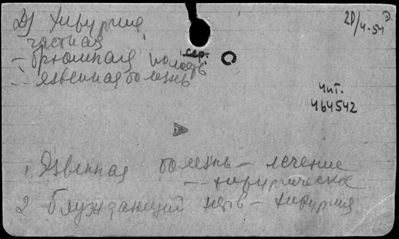 2) хирургия
частная
- брюшная полость
- язвенная болезнь
сер.
С
2Д/4-54
чит.
464542
1. Язвенная болезнь - лечение
- - хирургическое
2 блуждающий нерв - хирургия